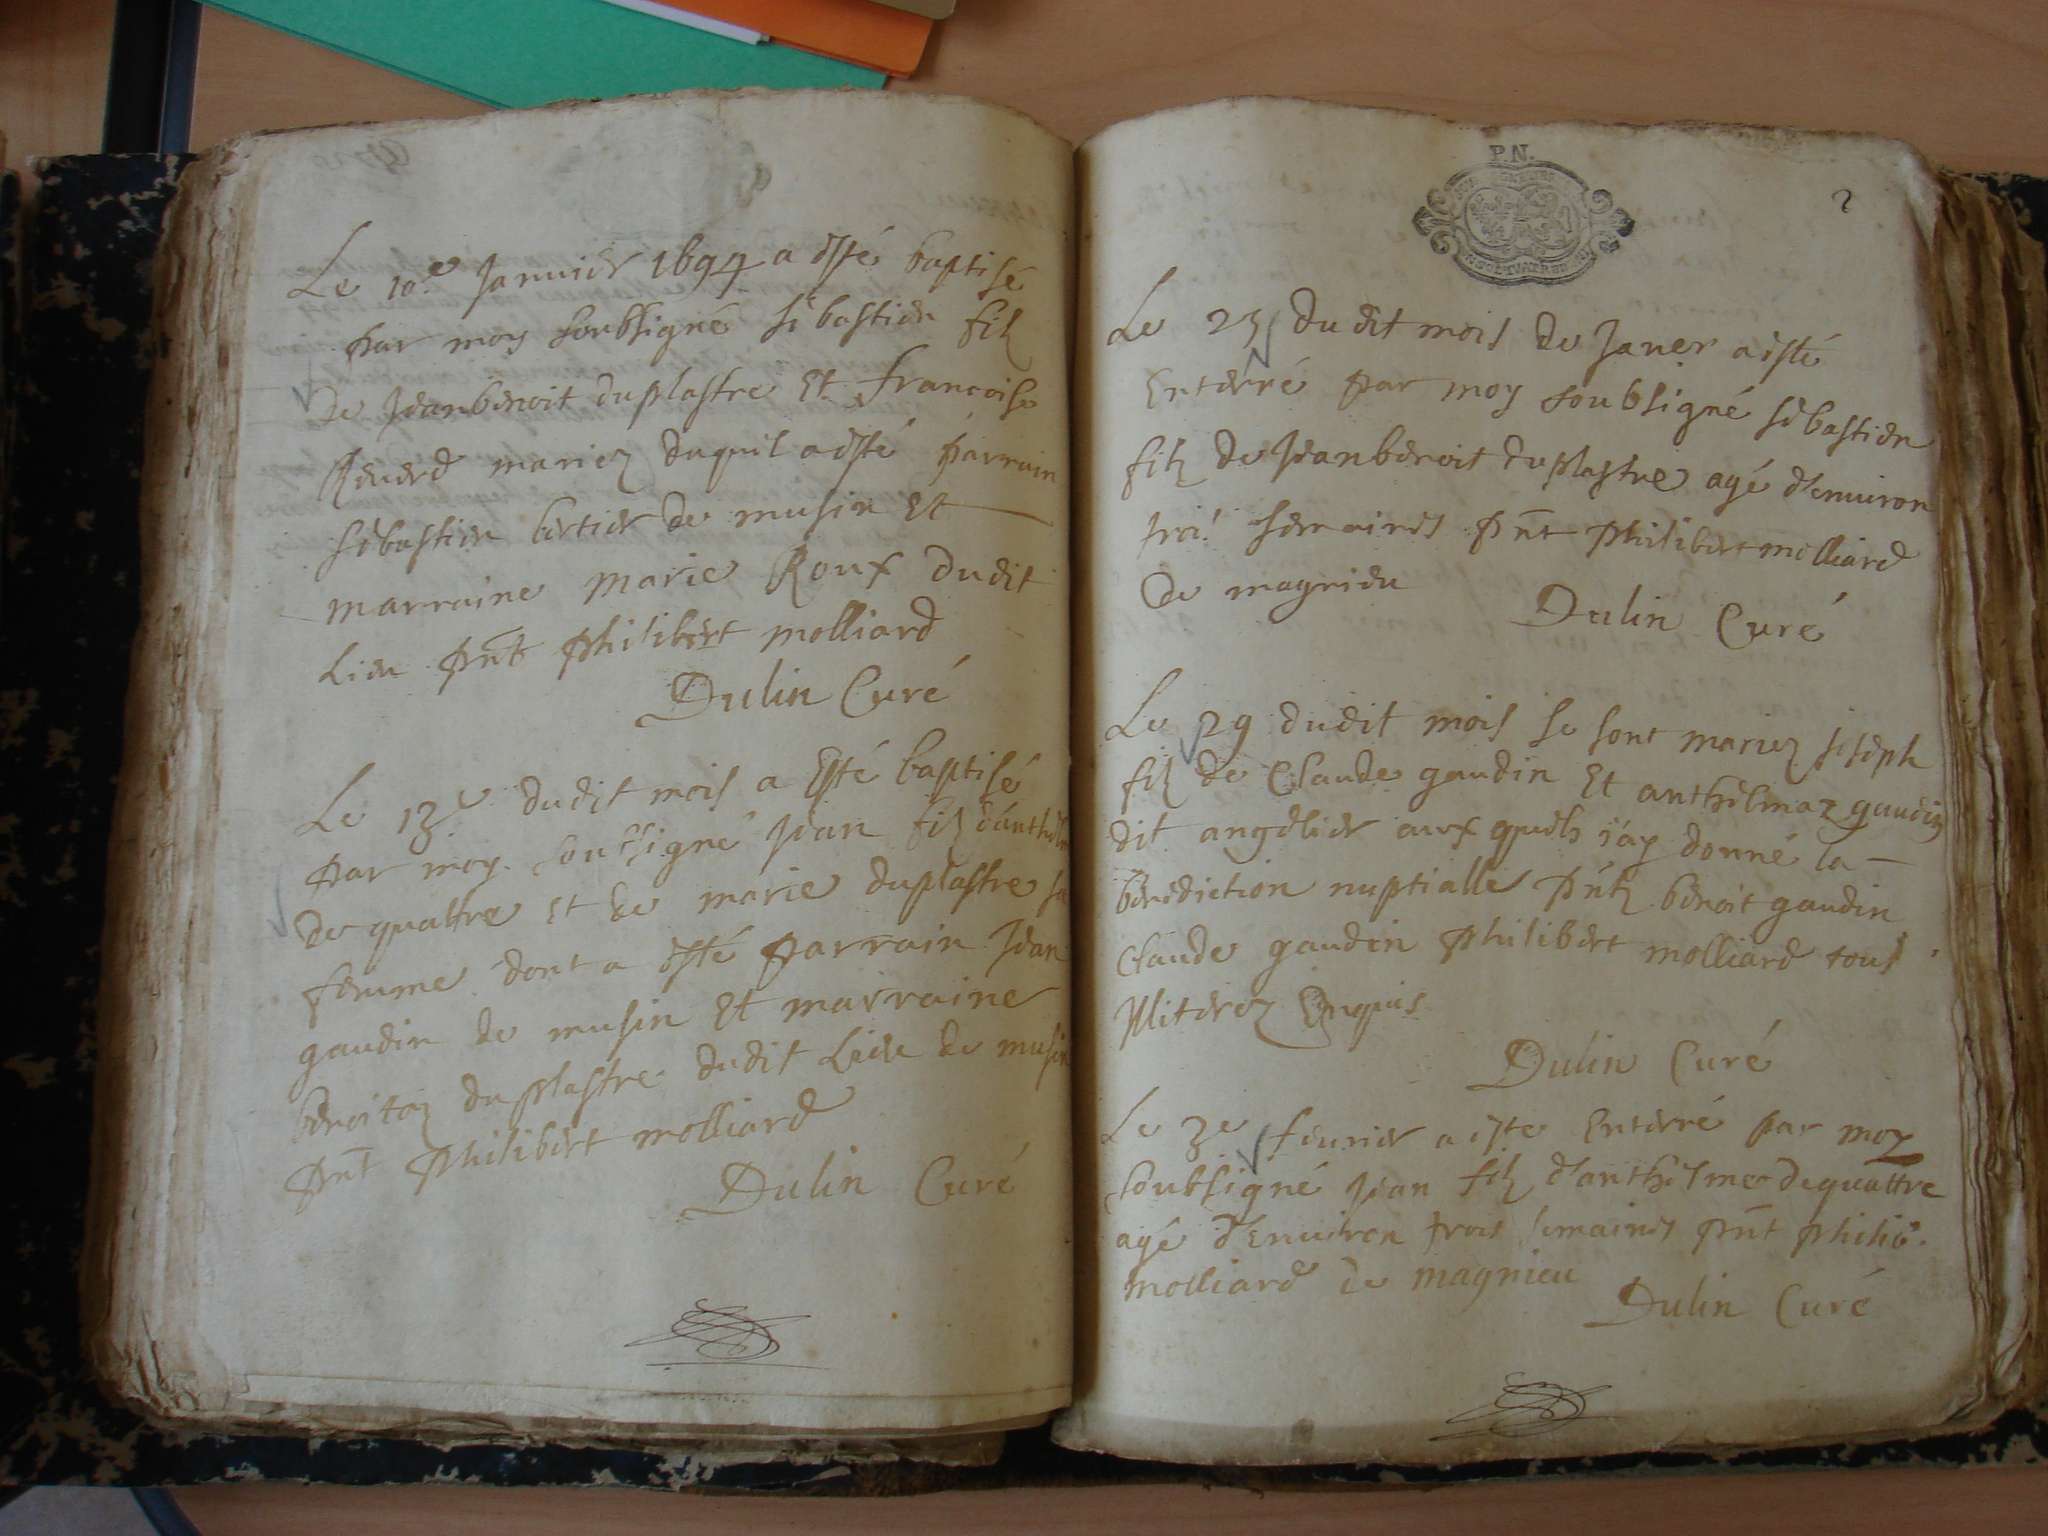 Le 10e Janvier 1694 a esté baptisé
par moy soubsigné sebastien filz
de Jeanbenoit duplastre Et francoise
Reverd mariez duquil a esté parrain
sebastien bertier de musin Et
marraine marie Roux dudit
Lieu pnt philibert molliard
Dulin Curé
Le 13e dudit mois a Esté baptisé
par moy soubsigné Jean filz d'anthelme
de quattre et de marie duplastre sa
femme dont a esté parrain Jean
gaudin de musin Et marraine
benoitaz duplastre dudit Lieu de musin
pnt philibert molliard
Dulin Curé
P.N.
2
Le 25 du dit mois de Janer a esté
Enterré par moy soubsigné sebastien
filz de Jeanbenoit duplastre agé d'environ
troi semaines pnt philibert molliard
de magnieu
Dulin Curé
Le 29 dudit mois se sont mariez joseph
filz de Claude gaudin Et anthelmaz gaudin
dit angelier aux quels j'ay donné la
benediction nuptialle pntz benoit gaudin
Claude gaudin philibert molliard tous
Illiterez Enquis
Dulin Curé
Le 3e fevrier a este Enterré par moy
soubsigné jean filz d'anthelme dequattre
agé d'environ trois semaines pnt philib.
molliard de magnieu
Dulin Curé